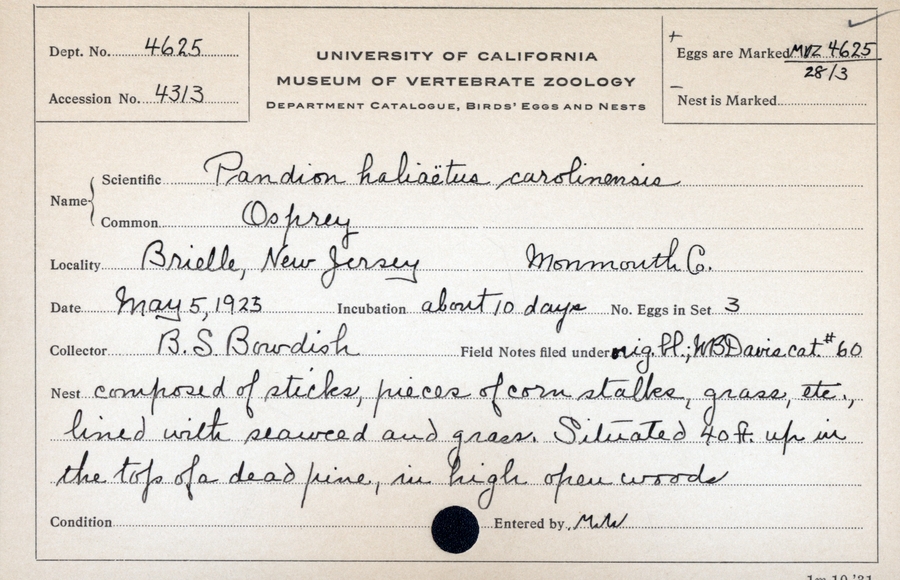 Dept. No. 4625
Accession No. 4313
UNIVERSITY OF CALIFORNIA
MUSEUM OF VERTEBRATE ZOOLOGY
DEPARTMENT CATALOGUE, BIRDS' EGGS AND NESTS
+
Eggs are Marked MVZ 4625
28/3
–
Nest is Marked
Name
Scientific Pandion haliaëtus carolinensis
Common Osprey
Locality Brielle, New Jersey Monmouth Co.
Date May 5, 1923 Incubation about 10 days No. Eggs in Set 3
Collector B.S. Bowdish Field Notes filed under orig. bl.; WBDavis cat. # 60
Nest composed of sticks, pieces of corn stalks, grass, etc.,
lined with seaweed and grass. Situated 40 ft. up in
the top of a dead pine, in high open woods
Condition Entered by MW
1m 10 '31